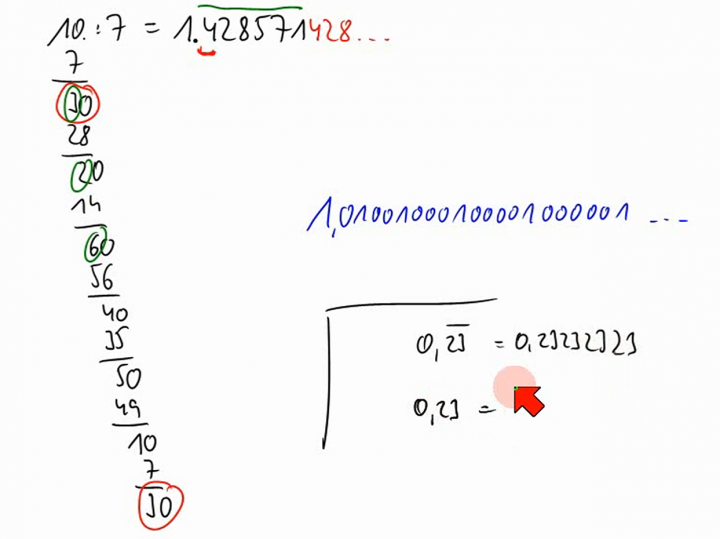 10. : 7 = 1.428571428...
7
30
28
20
14
60
56
40
35
50
49
10
7
30
1,01001000100001000001 ...
0,2̅3̅ = 0,23232323
0,23 =